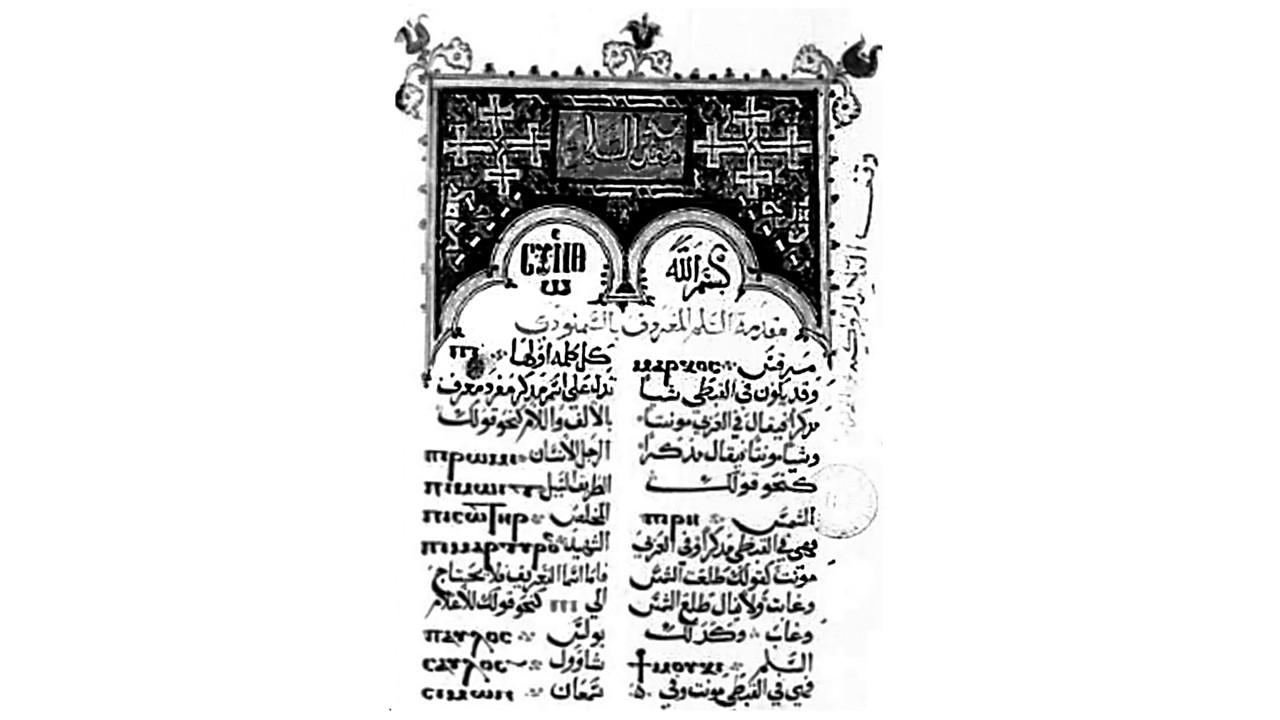 مقدمة السلم
ⲥⲩⲛ ⲑⲉⲱ
بسم الله
مقدمة السلم المعروف بالسمنودي
كل كلمه اولها ⲡⲓ
تدل على اسم مذكر مفرد معرف
بالالف واللام كنحو قولك
الرجل الانسان ⲡⲓⲣⲱⲙⲓ
الطريق السبيل ⲡⲓⲙⲱⲓⲧ
المخلص ⲡⲓⲥⲱⲧⲏⲣ
الشهيد ⲡⲓⲙⲁⲣⲧⲩⲣⲟⲥ
فاما اسما التعريف فلا يحتاج
الي ⲡⲓ كنحو قولك للاعلام
بولس ⲡⲁⲩⲗⲟⲥ
شاوول ⲥⲁⲩⲗⲟⲥ
سمعان ⲥⲓⲙⲱⲛ
مرقس ⲙⲁⲣⲕⲟⲥ
وقد يكون في القبطي شيا
مذكرا فيقال في العربي مونثا
وشيا مونثا فيقال مذكرا
كنحو قولك
الشمس ⲡⲓⲣⲏ
فهي في القبطي مذكرا وفي العربي
مونث كقولك طلعت الشمس
وغابت ولا يقال طلع الشمس
وغاب وكذلك
السلم ϯⲙⲟⲩⲕⲓ
فهي في القبطي مونث وفي